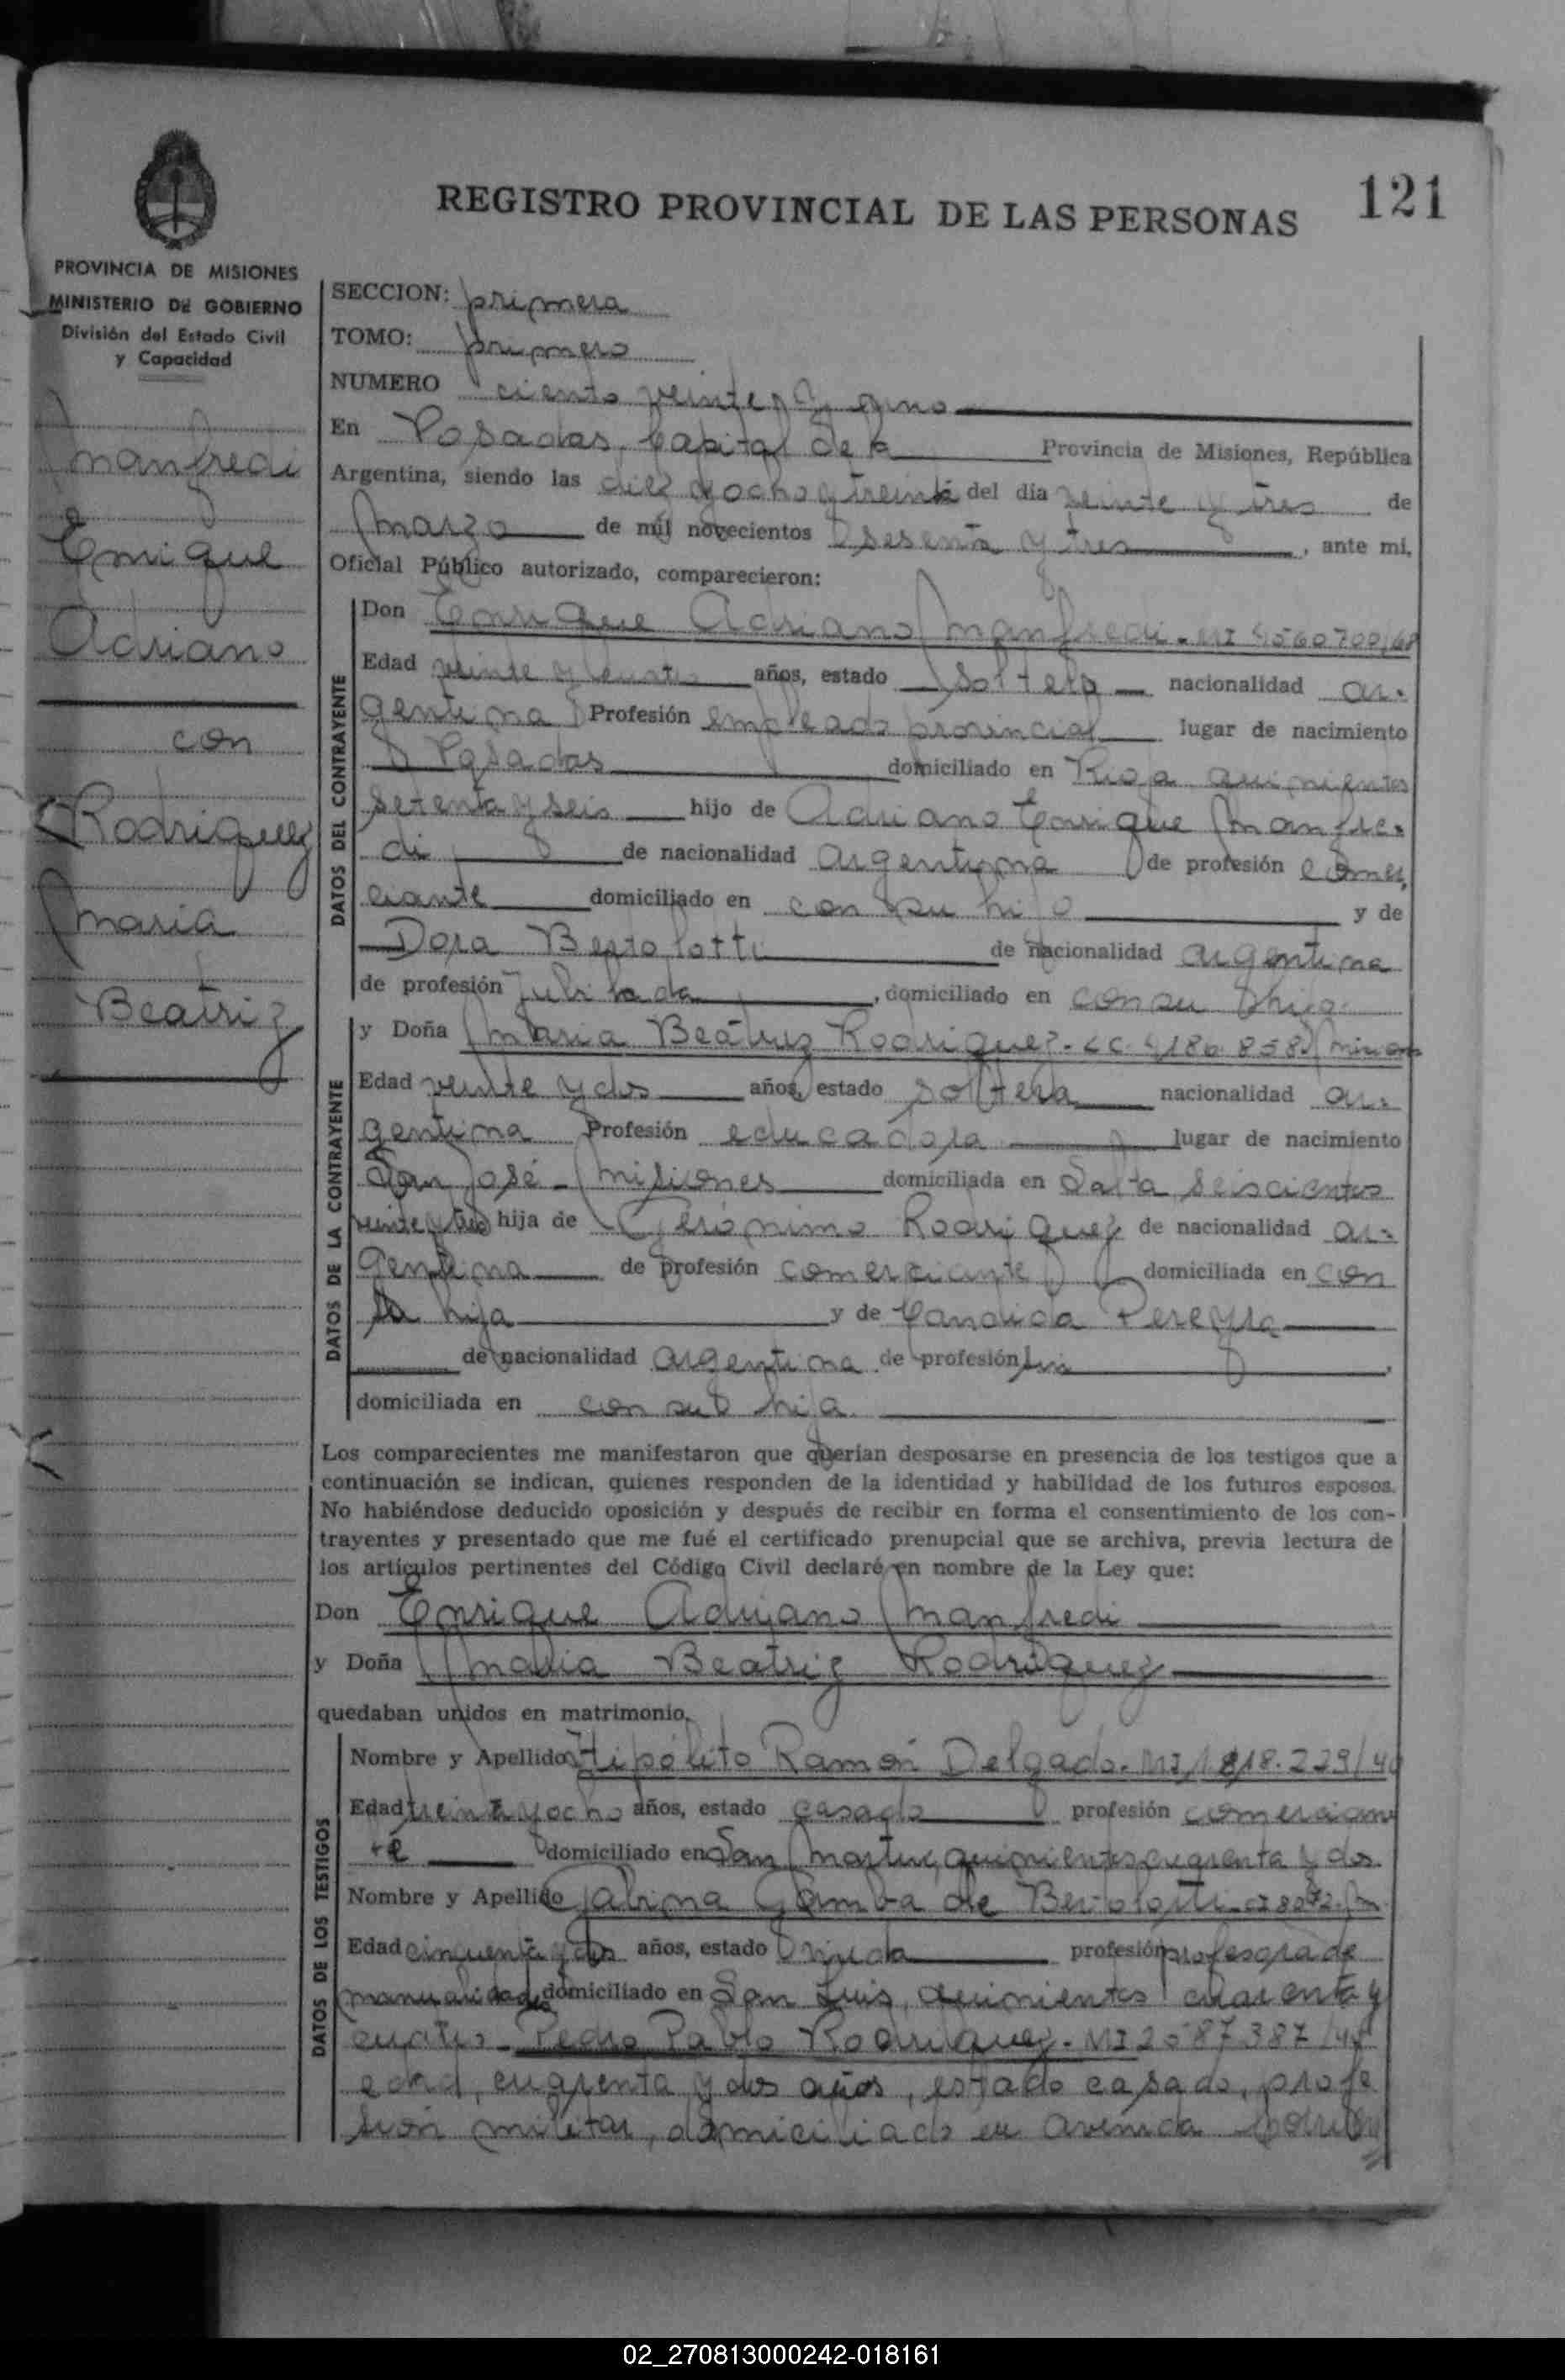 REGISTRO PROVINCIAL DE LAS PERSONAS
121
PROVINCIA DE MISIONES
MINISTERIO DE GOBIERNO
División del Estado Civil
y Capacidad
Manfredi
Enrique
Adriano
con
Rodriguez
Maria
Beatriz
SECCION: primera
TOMO: primero
NUMERO ciento veinte y uno
En Posadas, Capital de la Provincia de Misiones, República
Argentina, siendo las diez y ocho y treinta del día veinte y tres de
Marzo de mil novecientos sesenta y tres, ante mi,
Oficial Público autorizado, comparecieron:
DATOS DEL CONTRAYENTE
Don Enrique Adriano Manfredi - MI
Edad veinte y cuatro años, estado soltero nacionalidad ar-
gentina Profesión empleado provincial lugar de nacimiento
Posadas domiciliado en Rioja quinientos
setenta y seis hijo de Adriano Enrique Manfre-
di de nacionalidad argentina de profesión comer
ciante domiciliado en con su hijo y de
Dora Bertolotti de nacionalidad argentina
de profesión Jubilada, domiciliado en con su hijo.
DATOS DE LA CONTRAYENTE
y Doña Maria Beatriz Rodriguez - LC. 4186.858
Edad veinte y dos años, estado soltera nacionalidad ar-
gentina Profesión educadora lugar de nacimiento
San José - Misiones domiciliada en Salta seiscientos
veinte y tres hija de Gerónimo Rodriguez de nacionalidad ar-
gentina de profesión comerciante domiciliada en con
su hija y de Candida Pereyra
de nacionalidad argentina de profesión sin,
domiciliada en con su hija.
Los comparecientes me manifestaron que querían desposarse en presencia de los testigos que a
continuación se indican, quienes responden de la identidad y habilidad de los futuros esposos.
No habiéndose deducido oposición y después de recibir en forma el consentimiento de los con-
trayentes y presentado que me fué el certificado prenupcial que se archiva, previa lectura de
los artículos pertinentes del Código Civil declaré en nombre de la Ley que:
Don Enrique Adriano Manfredi
y Doña Maria Beatriz Rodriguez
quedaban unidos en matrimonio.
DATOS DE LOS TESTIGOS
Nombre y Apellido Hipólito Ramón Delgado. MI 1.818.229/40
Edad treinta y ocho años, estado casado profesión comercian
te domiciliado en San Martin, quinientos cuarenta y dos
Nombre y Apellido Gabina Gamba de Bertolotti
Edad cincuenta y dos años, estado viuda profesión profesora de
manualidades domiciliado en San Luis, quinientos cuarenta y
cuatro - Pedro Pablo Rodriguez - MI 2587387
edad, cuarenta y dos años, estado casado, profe
sión militar, domiciliado en avenida
02_270813000242-018161